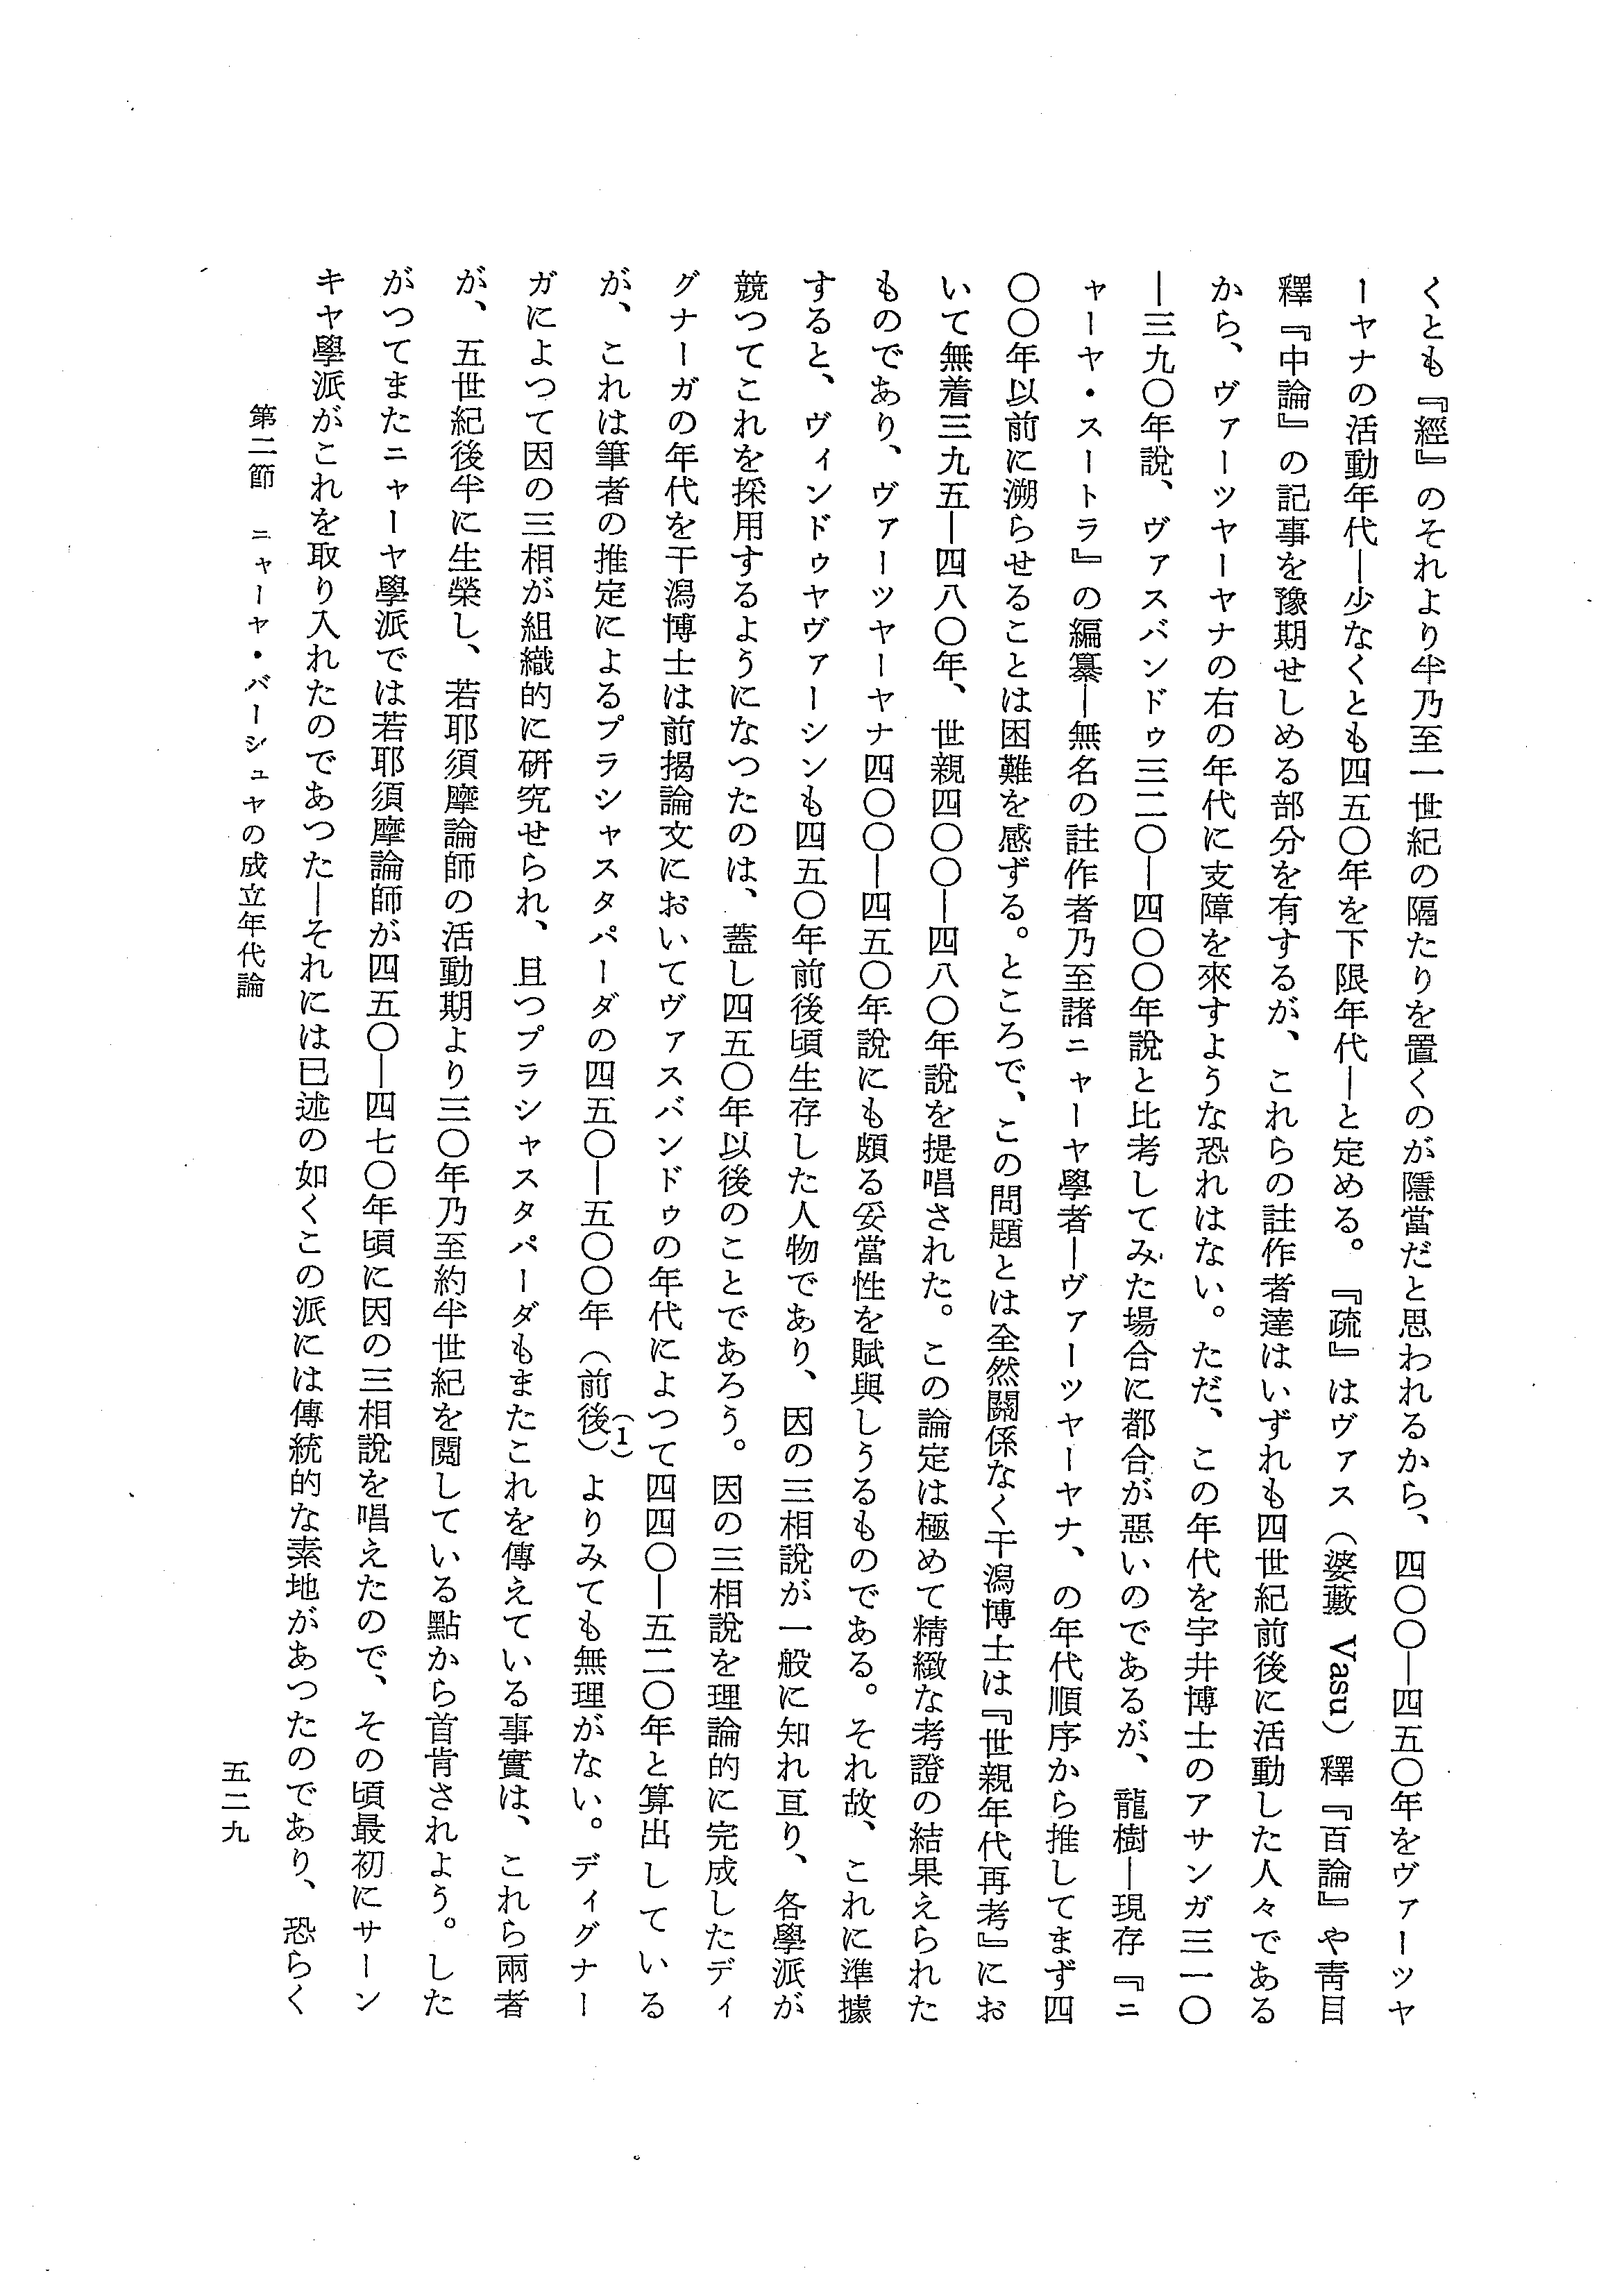 くとも『經』のそれより半乃至一世紀の隔たりを置くのが隱當だと思われるから、四〇〇―四五〇年をヴァーツヤ
ーヤナの活動年代―少なくとも四五〇年を下限年代―と定める。『疏』はヴァス（婆藪 Vasu）釋『百論』や靑目
釋『中論』の記事を豫期せしめる部分を有するが、これらの註作者達はいずれも四世紀前後に活動した人々である
から、ヴァーツヤーヤナの右の年代に支障を來すような恐れはない。ただ、この年代を宇井博士のアサンガ三一〇
―三九〇年說、ヴァスバンドゥ三二〇―四〇〇年說と比考してみた場合に都合が惡いのであるが、龍樹―現存『ニ
ャーヤ・スートラ』の編纂―無名の註作者乃至諸ニャーヤ學者―ヴァーツヤーヤナ、の年代順序から推してまず四
〇〇年以前に溯らせることは困難を感ずる。ところで、この問題とは全然關係なく干潟博士は『世親年代再考』にお
いて無着三九五―四八〇年、世親四〇〇―四八〇年說を提唱された。この論定は極めて精緻な考證の結果えられた
ものであり、ヴァーツヤーヤナ四〇〇―四五〇年說にも頗る妥當性を賦與しうるものである。それ故、これに準據
すると、ヴィンドゥヤヴァーシンも四五〇年前後頃生存した人物であり、因の三相說が一般に知れ亘り、各學派が
競つてこれを採用するようになつたのは、蓋し四五〇年以後のことであろう。因の三相說を理論的に完成したディ
グナーガの年代を干潟博士は前揭論文においてヴァスバンドゥの年代によつて四四〇―五二〇年と算出している
が、これは筆者の推定によるプラシャスタパーダの四五〇―五〇〇年（前後）(1)よりみても無理がない。ディグナー
ガによつて因の三相が組織的に硏究せられ、且つプラシャスタパーダもまたこれを傳えている事實は、これら兩者
が、五世紀後半に生榮し、若耶須摩論師の活動期より三〇年乃至約半世紀を閱している點から首肯されよう。した
がつてまたニャーヤ學派では若耶須摩論師が四五〇―四七〇年頃に因の三相說を唱えたので、その頃最初にサーン
キャ學派がこれを取り入れたのであつた―それには已述の如くこの派には傳統的な素地があつたのであり、恐らく
第二節 ニャーヤ・バーシュヤの成立年代論
五二九